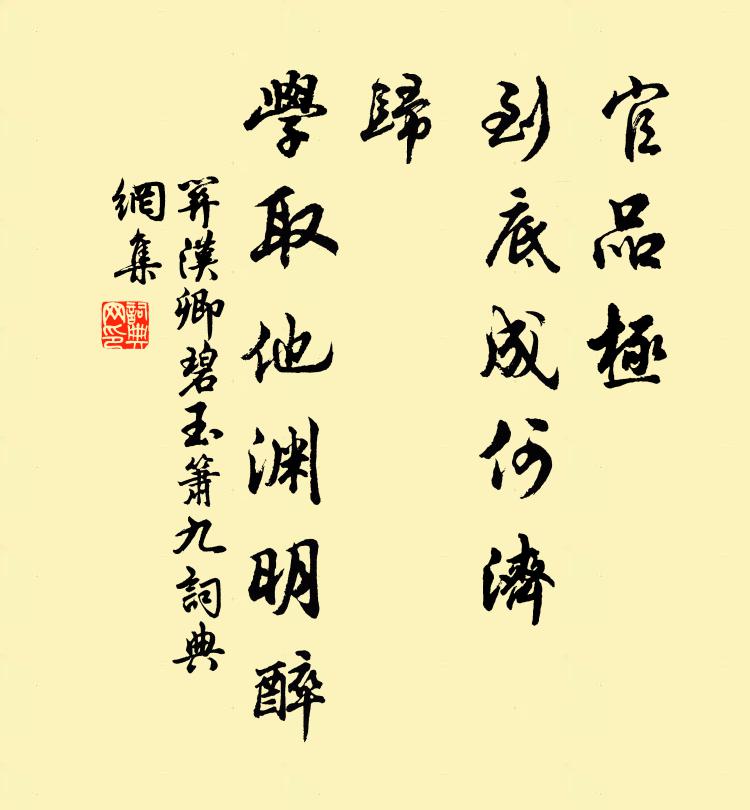 官品極
到底成何濟
歸
學取他渊明醉
關漢卿碧玉簫九詞典
網集
詞典
网印